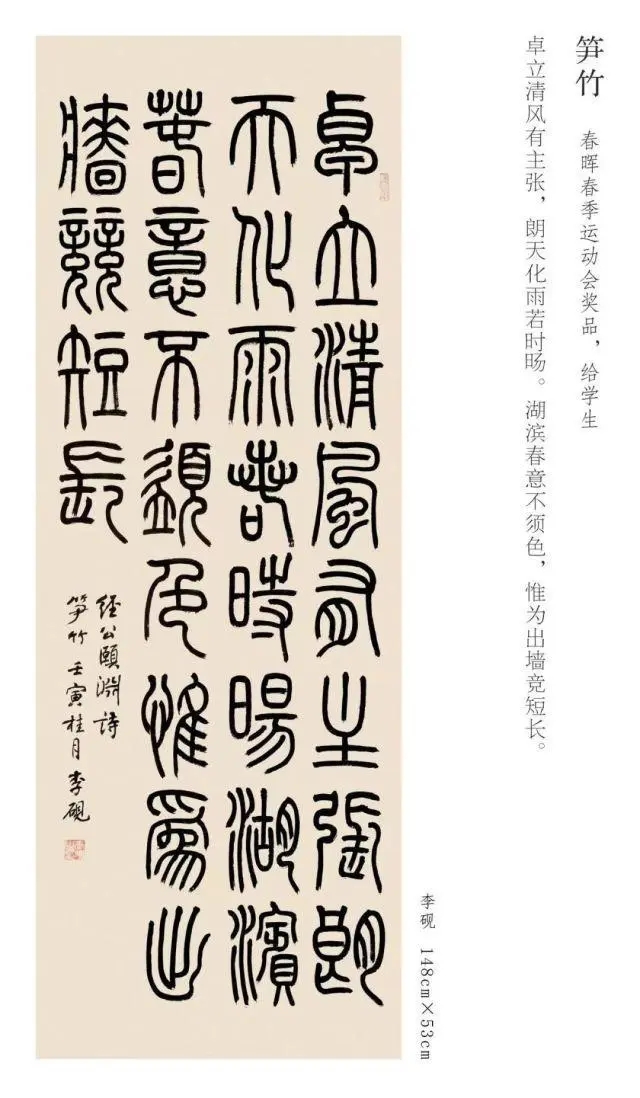 笋竹 春晖春季运动会奖品，给学生
卓立清风有主张，朗天化雨若时旸。湖滨春意不须色，惟为出墙竞短长。
卓立清风有主张朗
天化雨若時暘湖濱
春意不須色惟為出
牆競短長
経公頤淵詩
笋竹 壬寅桂月 李硯
李砚 148cm×53cm